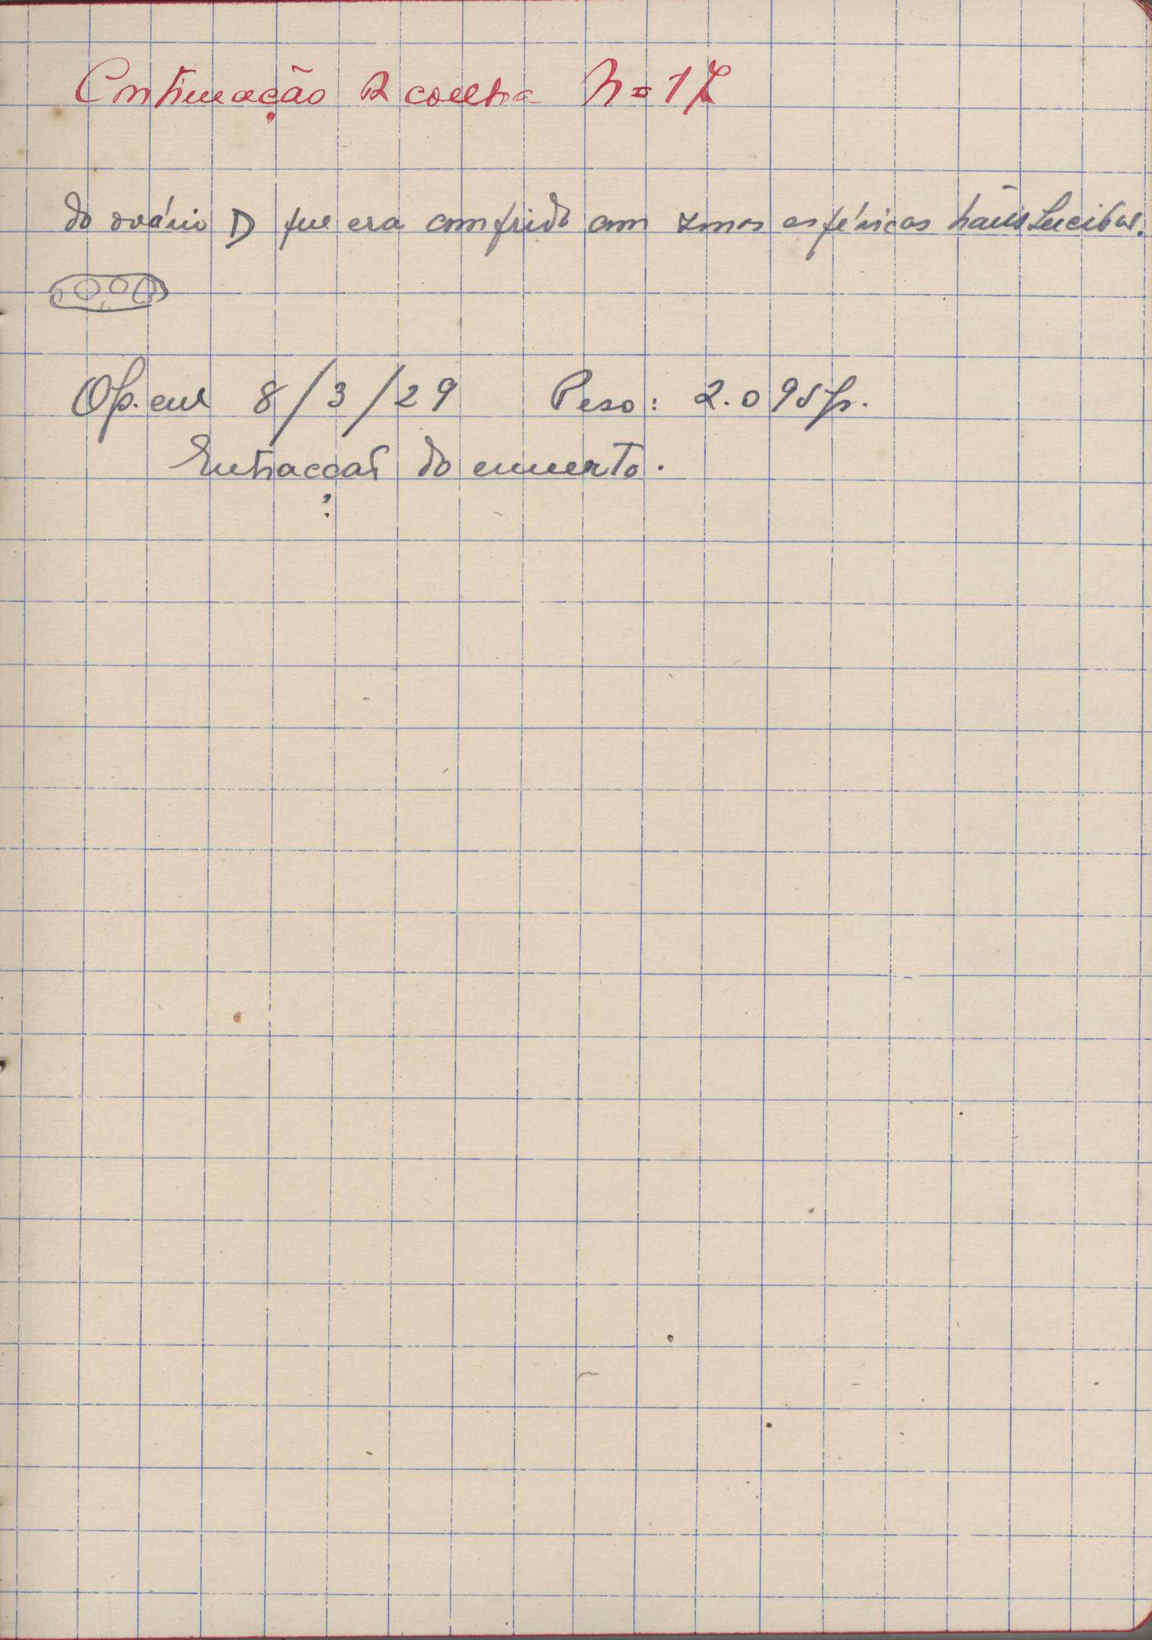 Continuação da coelha Nº 17
do ovário D que era comprido com zonas esféricas translucidas.
Op. em 8/3/29 Peso: 2.095 gr.
Extracção do enxerto.